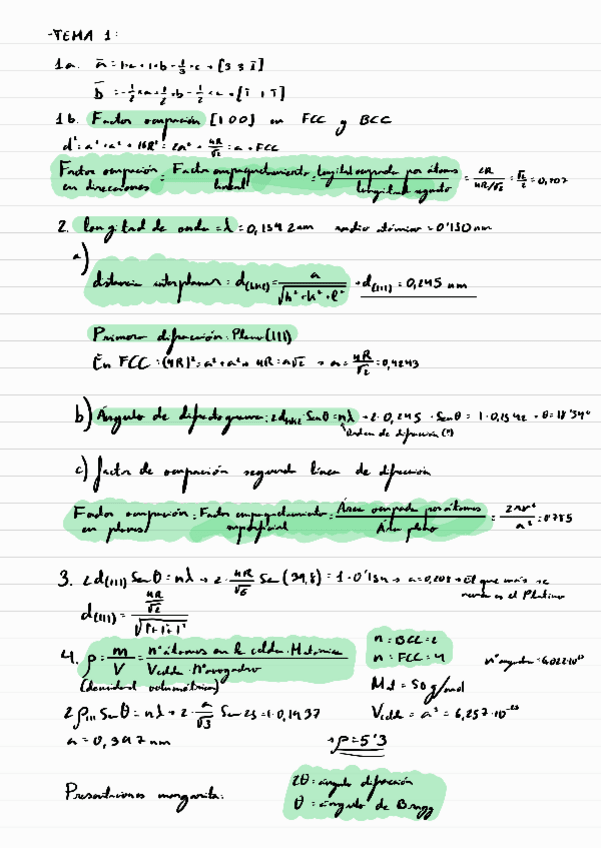 -TEMA 1:
1a. ā = 1·a + 1·b - 1/3·c → [3 3 1̄]
b̄ = -1/2·a + 1/2·b - 1/2·c → [1̄ 1 1̄]
1b. Factor ocupación [100] en FCC y BCC
d² = a² + a² → 16R² = 2a² → 4R/√2 = a → FCC
Factor ocupación en direcciones = Factor empaquetamiento lineal = Longitud ocupada por átomos / longitud = 2R / 4R/√2 = √2/2 = 0,707
2. Longitud de onda = λ = 0,1542 nm radio atómico = 0'150 nm
a)
distancia interplanar = d(hkl) = a / √h² + k² + l² → d(111) = 0,245 nm
Primera difracción: Plano (111)
En FCC = (4R)² = a² + a² → 4R = a√2 → a = 4R/√2 = 0,4243
b) Ángulo de difractograma: 2dhkl · Senθ = nλ → 2 · 0,245 · Senθ = 1 · 0,1542 → θ = 18'34°
Orden de difracción (1º)
c) factor de ocupación segunda línea de difracción
Factor ocupación en planos = Factor empaquetamiento superficial = Área ocupada por átomos / Área plano = 2πr² / a² = 0'785
3. 2d(111) Senθ = nλ → 2 · 4R/√6 Sen (39,8) = 1 · 0'154 → a = 0,208 → El que más se
es el Platino
d(111) = 4R/√2 / √1²+1²+1²
4. ρ = m/V = nº átomos en la celda · Matómica / Vcelda · Nºavogadro
n = BCC = 2
n = FCC = 4
nº avogadro = 6,022·10²³
(densidad volumétrica)
Mat = 50 g/mol
2 d111 Senθ = nλ → 2 · a/√3 Sen 23 = 1 · 0,1937
Vcelda = a³ = 6,257 · 10⁻²³
a = 0,397 nm
→ ρ = 5'3
Presentaciones margarita:
2θ = ángulo difracción
θ = ángulo de Bragg